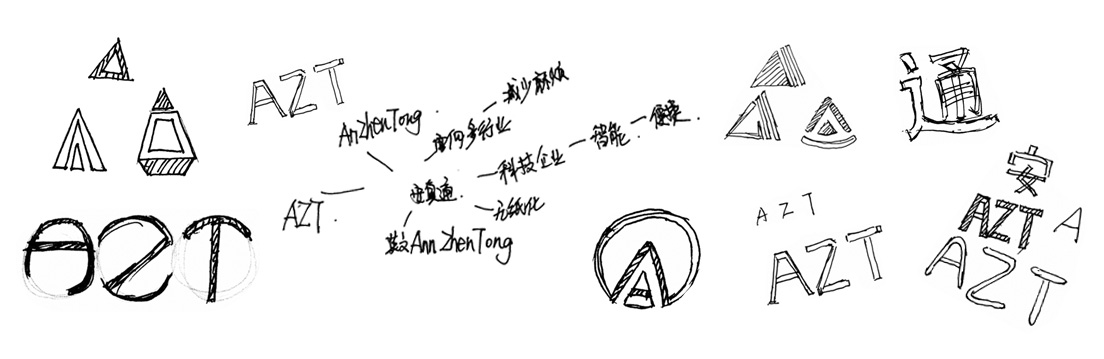 AZT
AnZhenTong
减少麻烦
面向多行业
科技企业
智能
便捷
AZT
安真通
无纸化
英文AnnZhenTong
AZT
A
通
安
AZT
A
AZT
AZT
AZT